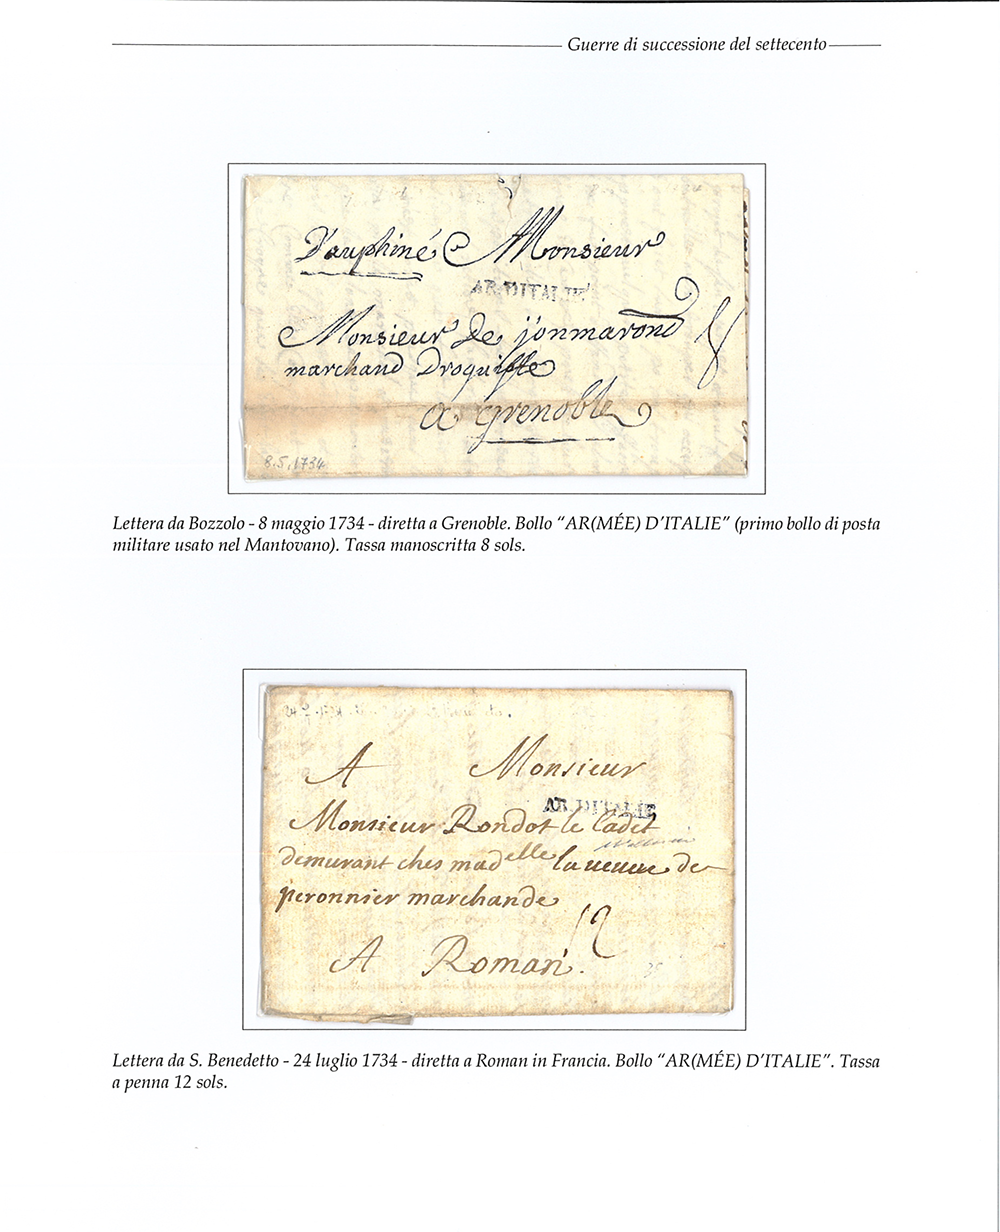 Guerre di successione del settecento
Dauphiné A Monsieur
AR.D'ITALIE
Monsieur de jonmarond
marchand Droguiste
a grenoble
8
8.5.1734
Lettera da Bozzolo - 8 maggio 1734 - diretta a Grenoble. Bollo “AR(MÉE) D’ITALIE” (primo bollo di posta
militare usato nel Mantovano). Tassa manoscritta 8 sols.
A Monsieur
AR.D'ITALIE
Monsieur Rondot le Cadet
demurant ches madelle la veuue de
peronnier marchande
12
A Roman.
35
Lettera da S. Benedetto - 24 luglio 1734 - diretta a Roman in Francia. Bollo “AR(MÉE) D’ITALIE”. Tassa
a penna 12 sols.